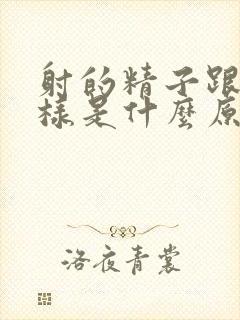 射的精子跟
様是什麼原
洛夜青裳